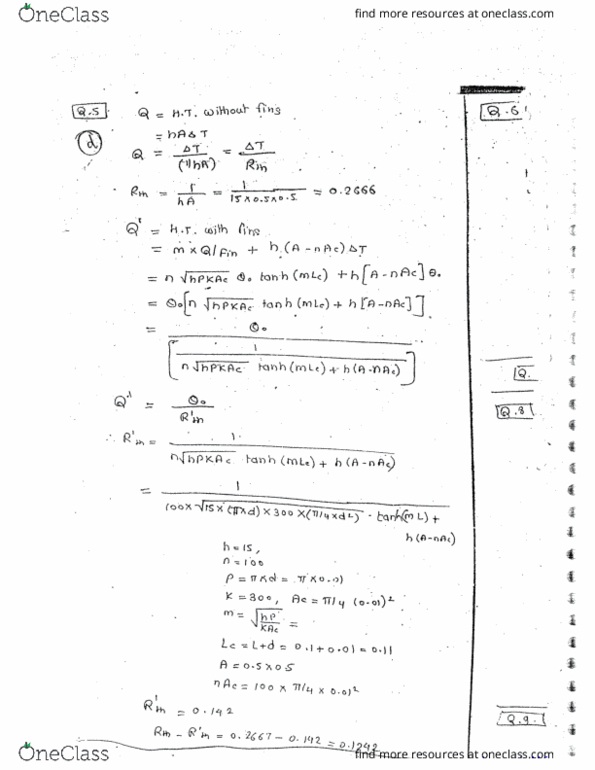 OneClass
find more resources at oneclass.com
Q.5 Q = H.T. without fins
Q.6
d = hAΔT
Q = ΔT/(1/hA) = ΔT/Rm
Rm = 1/hA = 1/(15×0.5×0.5) = 0.2666
Q' = H.T. with fins
= m × Q/Fin + h(A-nAc)ΔT
= n √hPKAc θ₀ tanh(mLc) + h[A-nAc]θ₀
= θ₀[n √hPKAc tanh(mLc) + h[A-nAc]]
= θ₀/[1/(n√hPKAc tanh(mLc) + h(A-nAc))]
Q.
Q.8
Q' = θ₀/R'm
∴ R'm = 1/(n√hPKAc tanh(mLc) + h(A-nAc))
= 1/(100×√15×(π×d)×300×(π/4×d²) · tanh(mL) +
h(A-nAc)
h=15,
n=100
P = π×d = π×0.01
K = 300, Ac = π/4 (0.01)²
m = √hP/KAc =
Lc = L+d = 0.1+0.01 = 0.11
A = 0.5×0.5
nAc = 100 × π/4 × 0.01²
R'm = 0.142
Rm - R'm = 0.2667 - 0.142 = 0.1242
Q.9
OneClass
find more resources at oneclass.com